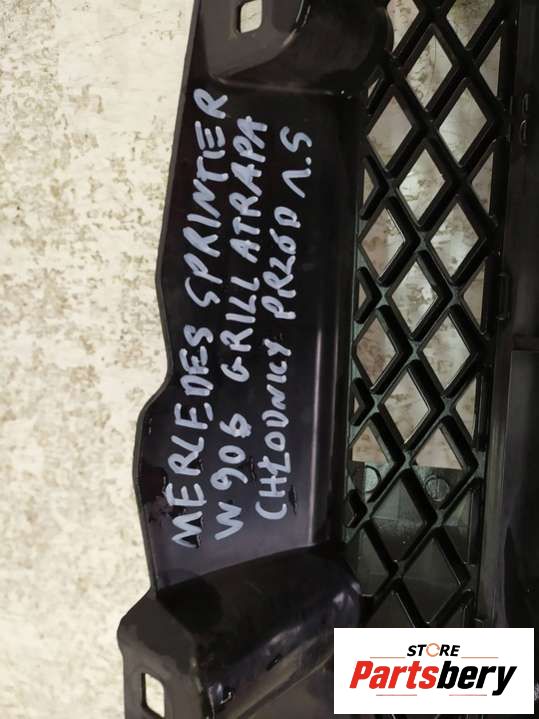 MERCEDES SPRINTER
W 906 GRILL ATRAPA
CHŁODNICY PRZÓD 1.5
STORE
Partsbery